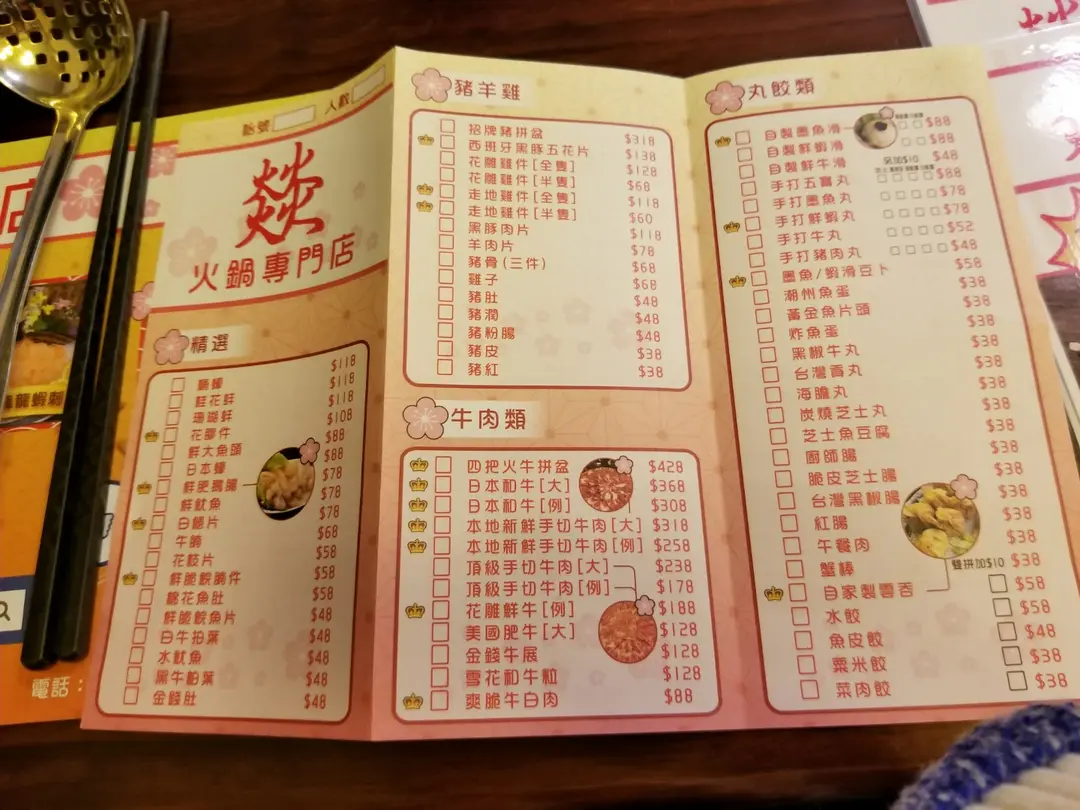 枱號
人數
燚
火鍋專門店
精選
$118
桂花蚌 $118
珊瑚蚌 $118
花膠件 $108
鮮大魚頭 $88
日本蠔 $88
鮮肥鵝腸 $78
鮮魷魚 $78
$78
$68
花枝片 $58
鮮脆鯇腩件 $58
棉花魚肚 $58
鮮脆鯇魚片 $48
白牛柏葉 $48
水魷魚 $48
黑牛柏葉 $48
金錢肚 $48
電話:
豬羊雞
招牌豬拼盆 $318
西班牙黑豚五花片 $138
花雕雞件[全隻] $128
花雕雞件[半隻] $68
走地雞件[全隻] $118
走地雞件[半隻] $60
黑豚肉片 $118
羊肉片 $78
豬骨(三件) $68
雞子 $68
豬肚 $48
豬潤 $48
豬粉腸 $48
豬皮 $38
豬紅 $38
牛肉類
四把火牛拼盆 $428
日本和牛[大] $368
日本和牛[例] $308
本地新鮮手切牛肉[大] $318
本地新鮮手切牛肉[例] $258
頂級手切牛肉[大] $238
頂級手切牛肉[例] $178
花雕鮮牛[例] $188
美國肥牛[大] $128
金錢牛展 $128
雪花和牛粒 $128
爽脆牛白肉 $88
丸餃類
自製墨魚滑 $88
自製鮮蝦滑 $88
自製鮮牛滑 $48
另加$10
手打五寶丸 $88
手打墨魚丸 $78
手打鮮蝦丸 $78
手打牛丸 $52
手打豬肉丸 $48
墨魚/蝦滑豆卜 $58
潮州魚蛋 $38
黃金魚片頭 $38
炸魚蛋 $38
黑椒牛丸 $38
台灣貢丸 $38
海膽丸 $38
炭燒芝士丸 $38
芝士魚豆腐 $38
廚師腸 $38
脆皮芝士腸 $38
台灣黑椒腸 $38
紅腸 $38
午餐肉 $38
蟹棒 $38
雙拼加$10
自家製雲吞 $58
水餃 $58
魚皮餃 $48
粟米餃 $38
菜肉餃 $38